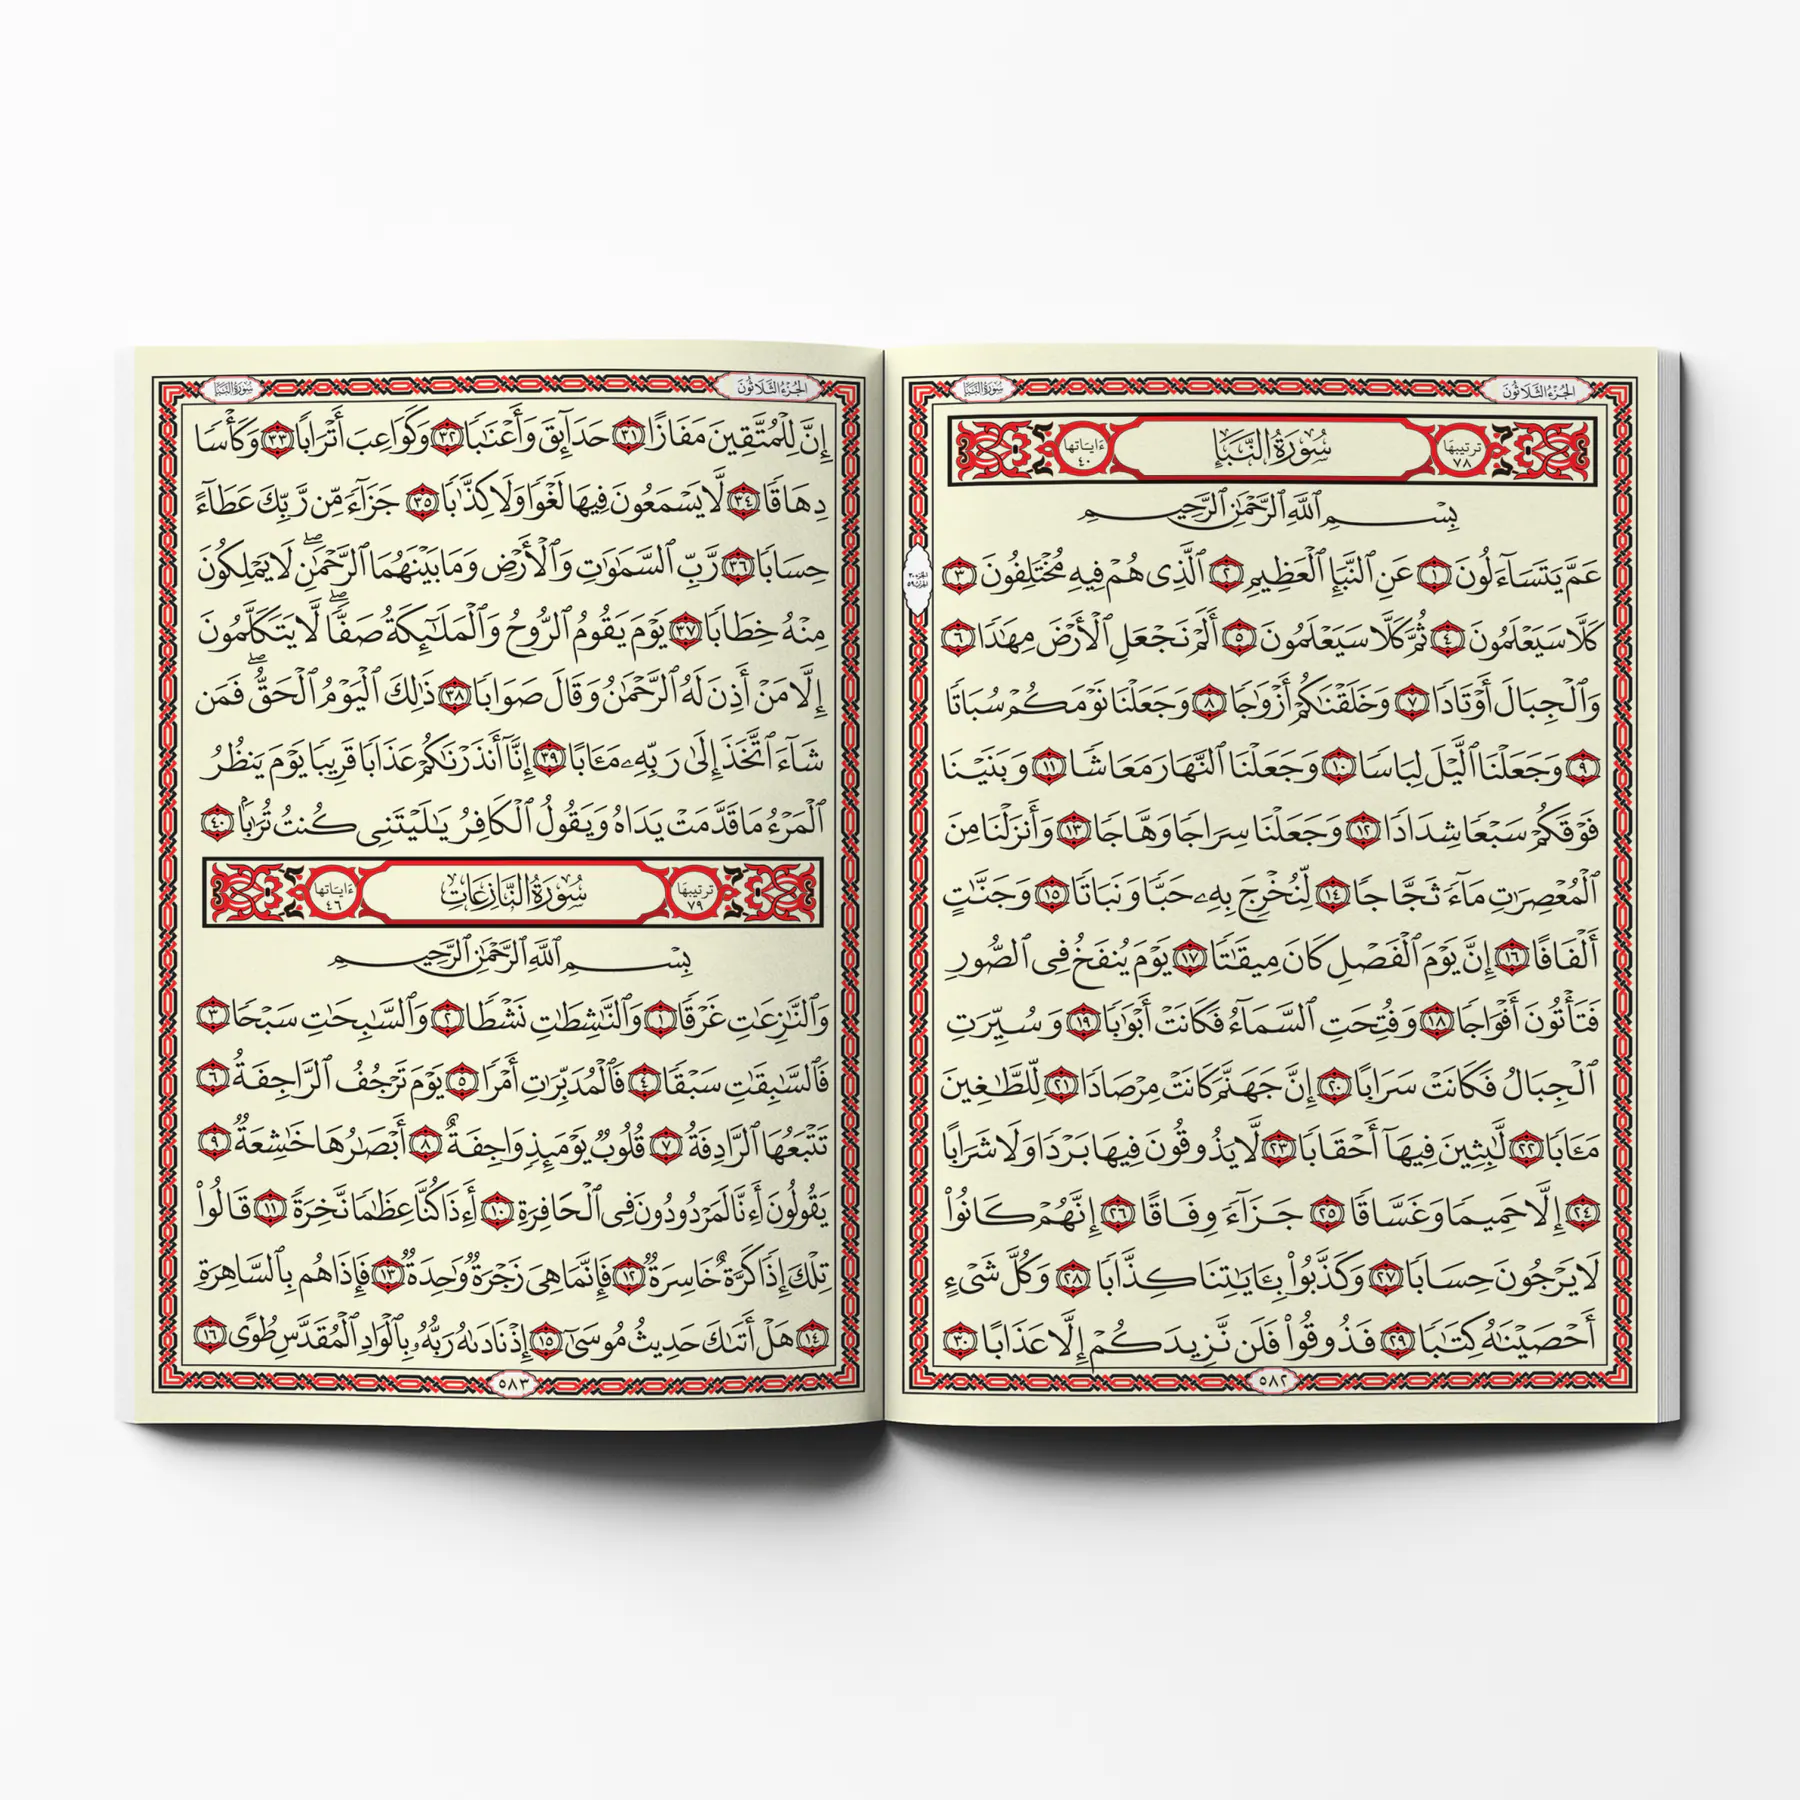 الجُزءُ الثَّلَاثُونَ
سُورَةُ النَّبَإِ
ترتيبها ٧٨
سُورَةُ النَّبَإِ
ءَايَاتها ٤٠
بِسْمِ ٱللَّهِ ٱلرَّحْمَٰنِ ٱلرَّحِيمِ
عَمَّ يَتَسَآءَلُونَ ١ عَنِ ٱلنَّبَإِ ٱلْعَظِيمِ ٢ ٱلَّذِى هُمْ فِيهِ مُخْتَلِفُونَ ٣
كَلَّا سَيَعْلَمُونَ ٤ ثُمَّ كَلَّا سَيَعْلَمُونَ ٥ أَلَمْ نَجْعَلِ ٱلْأَرْضَ مِهَٰدًا ٦
وَٱلْجِبَالَ أَوْتَادًا ٧ وَخَلَقْنَٰكُمْ أَزْوَٰجًا ٨ وَجَعَلْنَا نَوْمَكُمْ سُبَاتًا
٩ وَجَعَلْنَا ٱلَّيْلَ لِبَاسًا ١٠ وَجَعَلْنَا ٱلنَّهَارَ مَعَاشًا ١١ وَبَنَيْنَا
فَوْقَكُمْ سَبْعًا شِدَادًا ١٢ وَجَعَلْنَا سِرَاجًا وَهَّاجًا ١٣ وَأَنزَلْنَا مِنَ
ٱلْمُعْصِرَٰتِ مَآءً ثَجَّاجًا ١٤ لِّنُخْرِجَ بِهِۦ حَبًّا وَنَبَاتًا ١٥ وَجَنَّٰتٍ
أَلْفَافًا ١٦ إِنَّ يَوْمَ ٱلْفَصْلِ كَانَ مِيقَٰتًا ١٧ يَوْمَ يُنفَخُ فِى ٱلصُّورِ
فَتَأْتُونَ أَفْوَاجًا ١٨ وَفُتِحَتِ ٱلسَّمَآءُ فَكَانَتْ أَبْوَٰبًا ١٩ وَسُيِّرَتِ
ٱلْجِبَالُ فَكَانَتْ سَرَابًا ٢٠ إِنَّ جَهَنَّمَ كَانَتْ مِرْصَادًا ٢١ لِّلطَّٰغِينَ
مَـَٔابًا ٢٢ لَّٰبِثِينَ فِيهَآ أَحْقَابًا ٢٣ لَّا يَذُوقُونَ فِيهَا بَرْدًا وَلَا شَرَابًا
٢٤ إِلَّا حَمِيمًا وَغَسَّاقًا ٢٥ جَزَآءً وِفَاقًا ٢٦ إِنَّهُمْ كَانُوا۟
لَا يَرْجُونَ حِسَابًا ٢٧ وَكَذَّبُوا۟ بِـَٔايَٰتِنَا كِذَّابًا ٢٨ وَكُلَّ شَىْءٍ
أَحْصَيْنَٰهُ كِتَٰبًا ٢٩ فَذُوقُوا۟ فَلَن نَّزِيدَكُمْ إِلَّا عَذَابًا ٣٠
٥٨٢
الجُزءُ الثَّلَاثُونَ
سُورَةُ النَّبَإِ
إِنَّ لِلْمُتَّقِينَ مَفَازًا ٣١ حَدَآئِقَ وَأَعْنَٰبًا ٣٢ وَكَوَاعِبَ أَتْرَابًا ٣٣ وَكَأْسًا
دِهَاقًا ٣٤ لَّا يَسْمَعُونَ فِيهَا لَغْوًا وَلَا كِذَّٰبًا ٣٥ جَزَآءً مِّن رَّبِّكَ عَطَآءً
حِسَابًا ٣٦ رَّبِّ ٱلسَّمَٰوَٰتِ وَٱلْأَرْضِ وَمَا بَيْنَهُمَا ٱلرَّحْمَٰنِۖ لَا يَمْلِكُونَ
مِنْهُ خِطَابًا ٣٧ يَوْمَ يَقُومُ ٱلرُّوحُ وَٱلْمَلَٰٓئِكَةُ صَفًّاۖ لَّا يَتَكَلَّمُونَ
إِلَّا مَنْ أَذِنَ لَهُ ٱلرَّحْمَٰنُ وَقَالَ صَوَابًا ٣٨ ذَٰلِكَ ٱلْيَوْمُ ٱلْحَقُّۖ فَمَن
شَآءَ ٱتَّخَذَ إِلَىٰ رَبِّهِۦ مَـَٔابًا ٣٩ إِنَّآ أَنذَرْنَٰكُمْ عَذَابًا قَرِيبًا يَوْمَ يَنظُرُ
ٱلْمَرْءُ مَا قَدَّمَتْ يَدَاهُ وَيَقُولُ ٱلْكَافِرُ يَٰلَيْتَنِى كُنتُ تُرَٰبًۢا ٤٠
ترتيبها ٧٩
سُورَةُ النَّازِعَاتِ
ءَايَاتها ٤٦
بِسْمِ ٱللَّهِ ٱلرَّحْمَٰنِ ٱلرَّحِيمِ
وَٱلنَّٰزِعَٰتِ غَرْقًا ١ وَٱلنَّٰشِطَٰتِ نَشْطًا ٢ وَٱلسَّٰبِحَٰتِ سَبْحًا ٣
فَٱلسَّٰبِقَٰتِ سَبْقًا ٤ فَٱلْمُدَبِّرَٰتِ أَمْرًا ٥ يَوْمَ تَرْجُفُ ٱلرَّاجِفَةُ ٦
تَتْبَعُهَا ٱلرَّادِفَةُ ٧ قُلُوبٌ يَوْمَئِذٍ وَاجِفَةٌ ٨ أَبْصَٰرُهَا خَٰشِعَةٌ ٩
يَقُولُونَ أَءِنَّا لَمَرْدُودُونَ فِى ٱلْحَافِرَةِ ١٠ أَءِذَا كُنَّا عِظَٰمًا نَّخِرَةً ١١ قَالُوا۟
تِلْكَ إِذًا كَرَّةٌ خَاسِرَةٌ ١٢ فَإِنَّمَا هِىَ زَجْرَةٌ وَٰحِدَةٌ ١٣ فَإِذَا هُم بِٱلسَّاهِرَةِ
١٤ هَلْ أَتَىٰكَ حَدِيثُ مُوسَىٰٓ ١٥ إِذْ نَادَىٰهُ رَبُّهُۥ بِٱلْوَادِ ٱلْمُقَدَّسِ طُوًى ١٦
٥٨٣